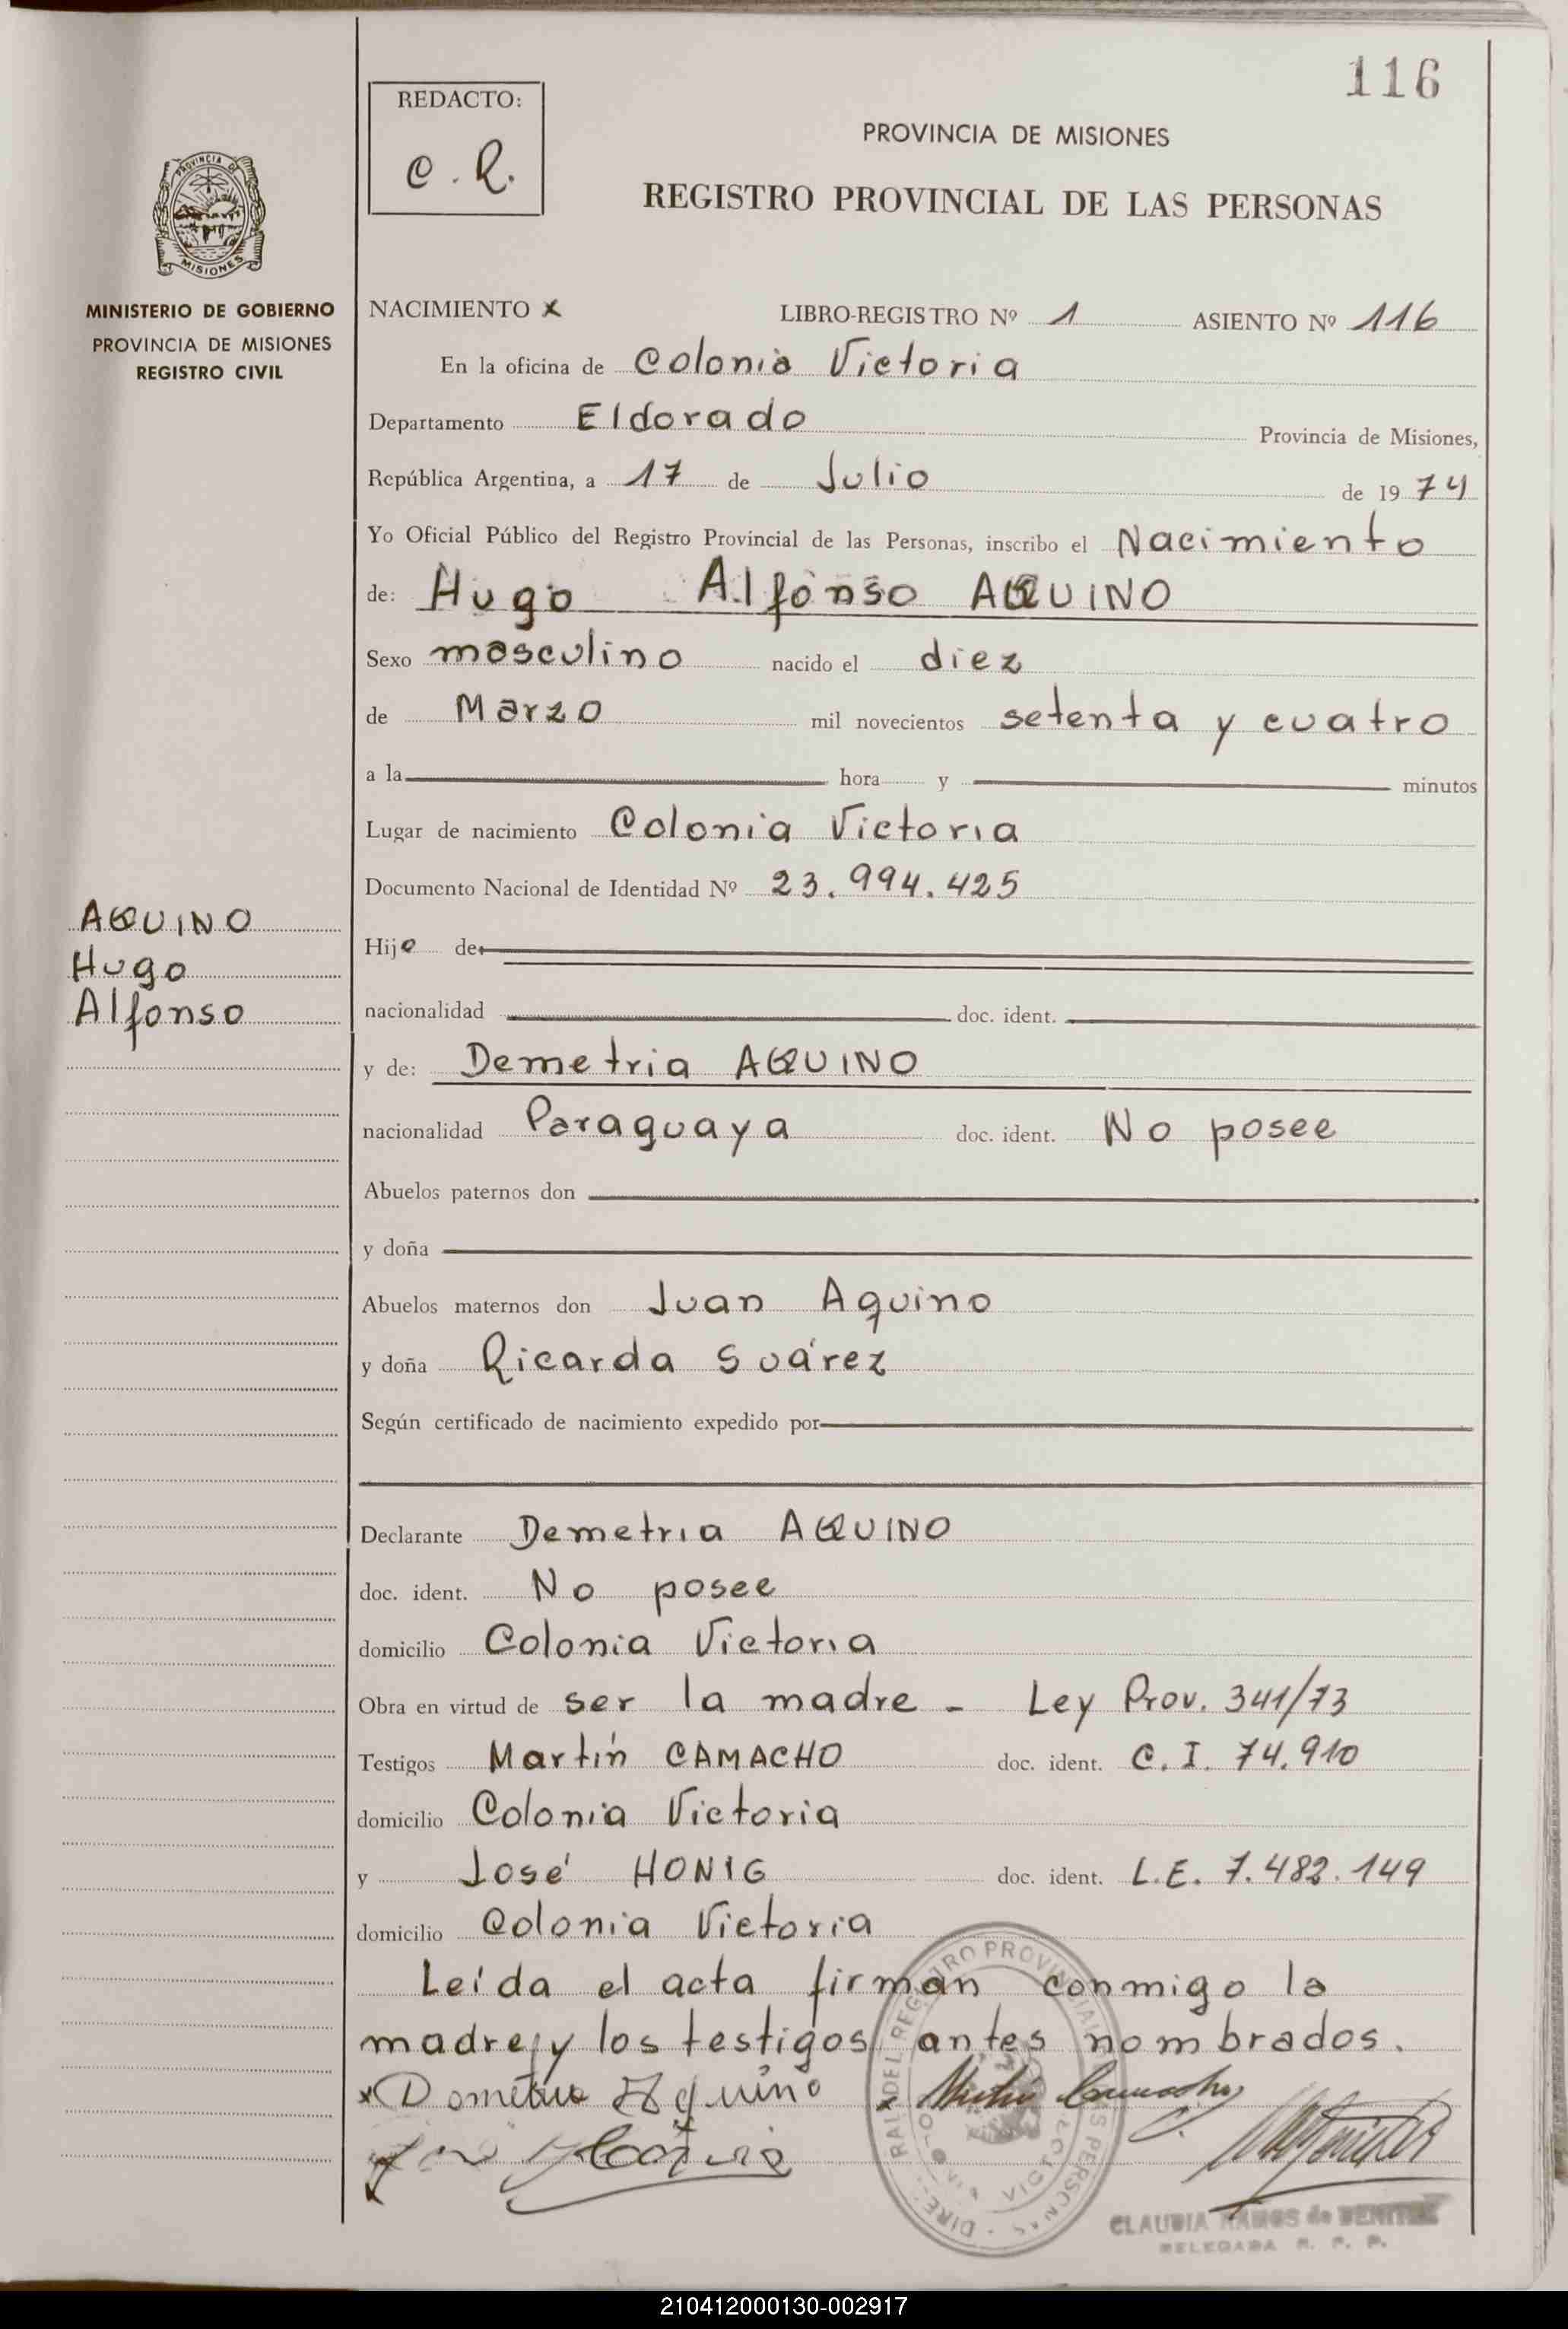 116
REDACTO:
C. R.
PROVINCIA DE MISIONES
REGISTRO PROVINCIAL DE LAS PERSONAS
PROVINCIA DE
MISIONES
MINISTERIO DE GOBIERNO
PROVINCIA DE MISIONES
REGISTRO CIVIL
NACIMIENTO x LIBRO-REGISTRO Nº 1 ASIENTO Nº 116
En la oficina de Colonia Victoria
Departamento Eldorado Provincia de Misiones,
República Argentina, a 17 de Julio de 1974
Yo Oficial Público del Registro Provincial de las Personas, inscribo el Nacimiento
de: Hugo Alfonso AQUINO
Sexo masculino nacido el diez
de Marzo mil novecientos setenta y cuatro
a la hora y minutos
Lugar de nacimiento Colonia Victoria
Documento Nacional de Identidad Nº 23.994.425
AQUINO
Hugo
Alfonso
Hijo de
nacionalidad doc. ident.
y de: Demetria AQUINO
nacionalidad Paraguaya doc. ident. No posee
Abuelos paternos don
y doña
Abuelos maternos don Juan Aquino
y doña Ricarda Suárez
Según certificado de nacimiento expedido por
Declarante Demetria AQUINO
doc. ident. No posee
domicilio Colonia Victoria
Obra en virtud de ser la madre - Ley Prov. 341/73
Testigos Martín CAMACHO doc. ident. C. I. 74.910
domicilio Colonia Victoria
y José HONIG doc. ident. L.E. 7.482.149
domicilio Colonia Victoria
Leída el acta firman conmigo la
madre y los testigos antes nombrados.
x Dometria Aquino x Martín Camacho
CLAUDIA RAMOS de BENITEZ
DELEGADA R. P. P.
210412000130-002917